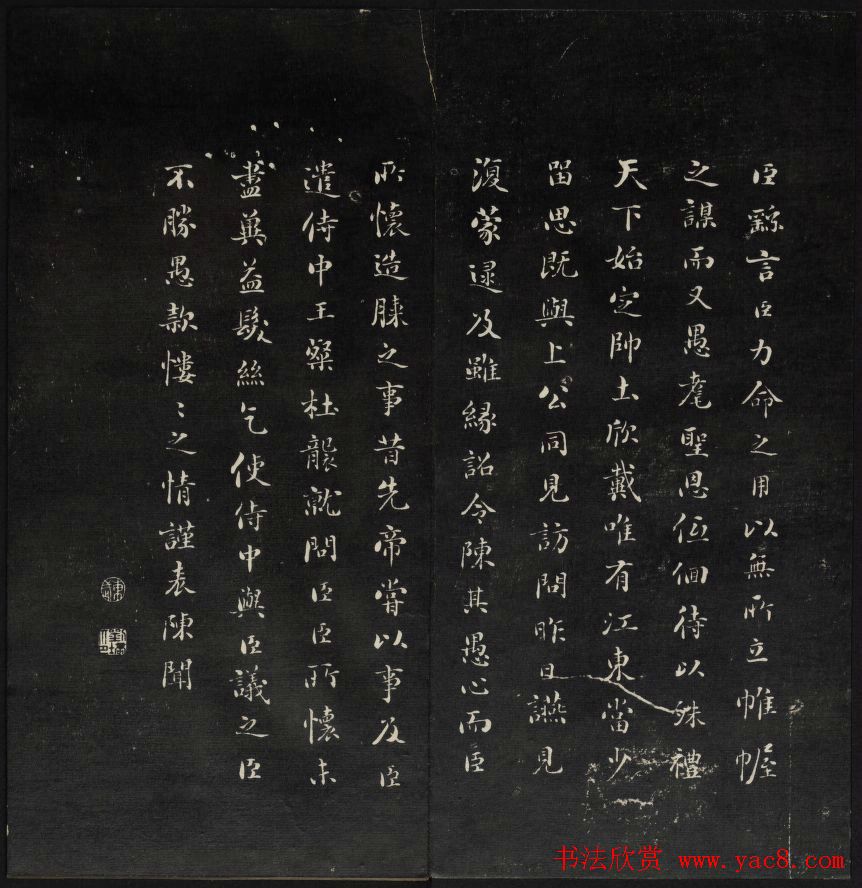 臣繇言臣力命之用以無所立帷幄
之謀而又愚耄聖恩伍佪待以殊禮
天下始定帥土欣戴唯有江東當少
留思既與上公同見訪問昨日讌見
復蒙逮及雖緣詔令陳其愚心而臣
所懷造膝之事昔先帝嘗以事及臣
遣侍中王粲杜襲就問臣臣所懷未
盡冀益髮絲乞使侍中與臣議之臣
不勝愚款悽〻之情謹表陳聞
书法欣赏 www.yac8.com